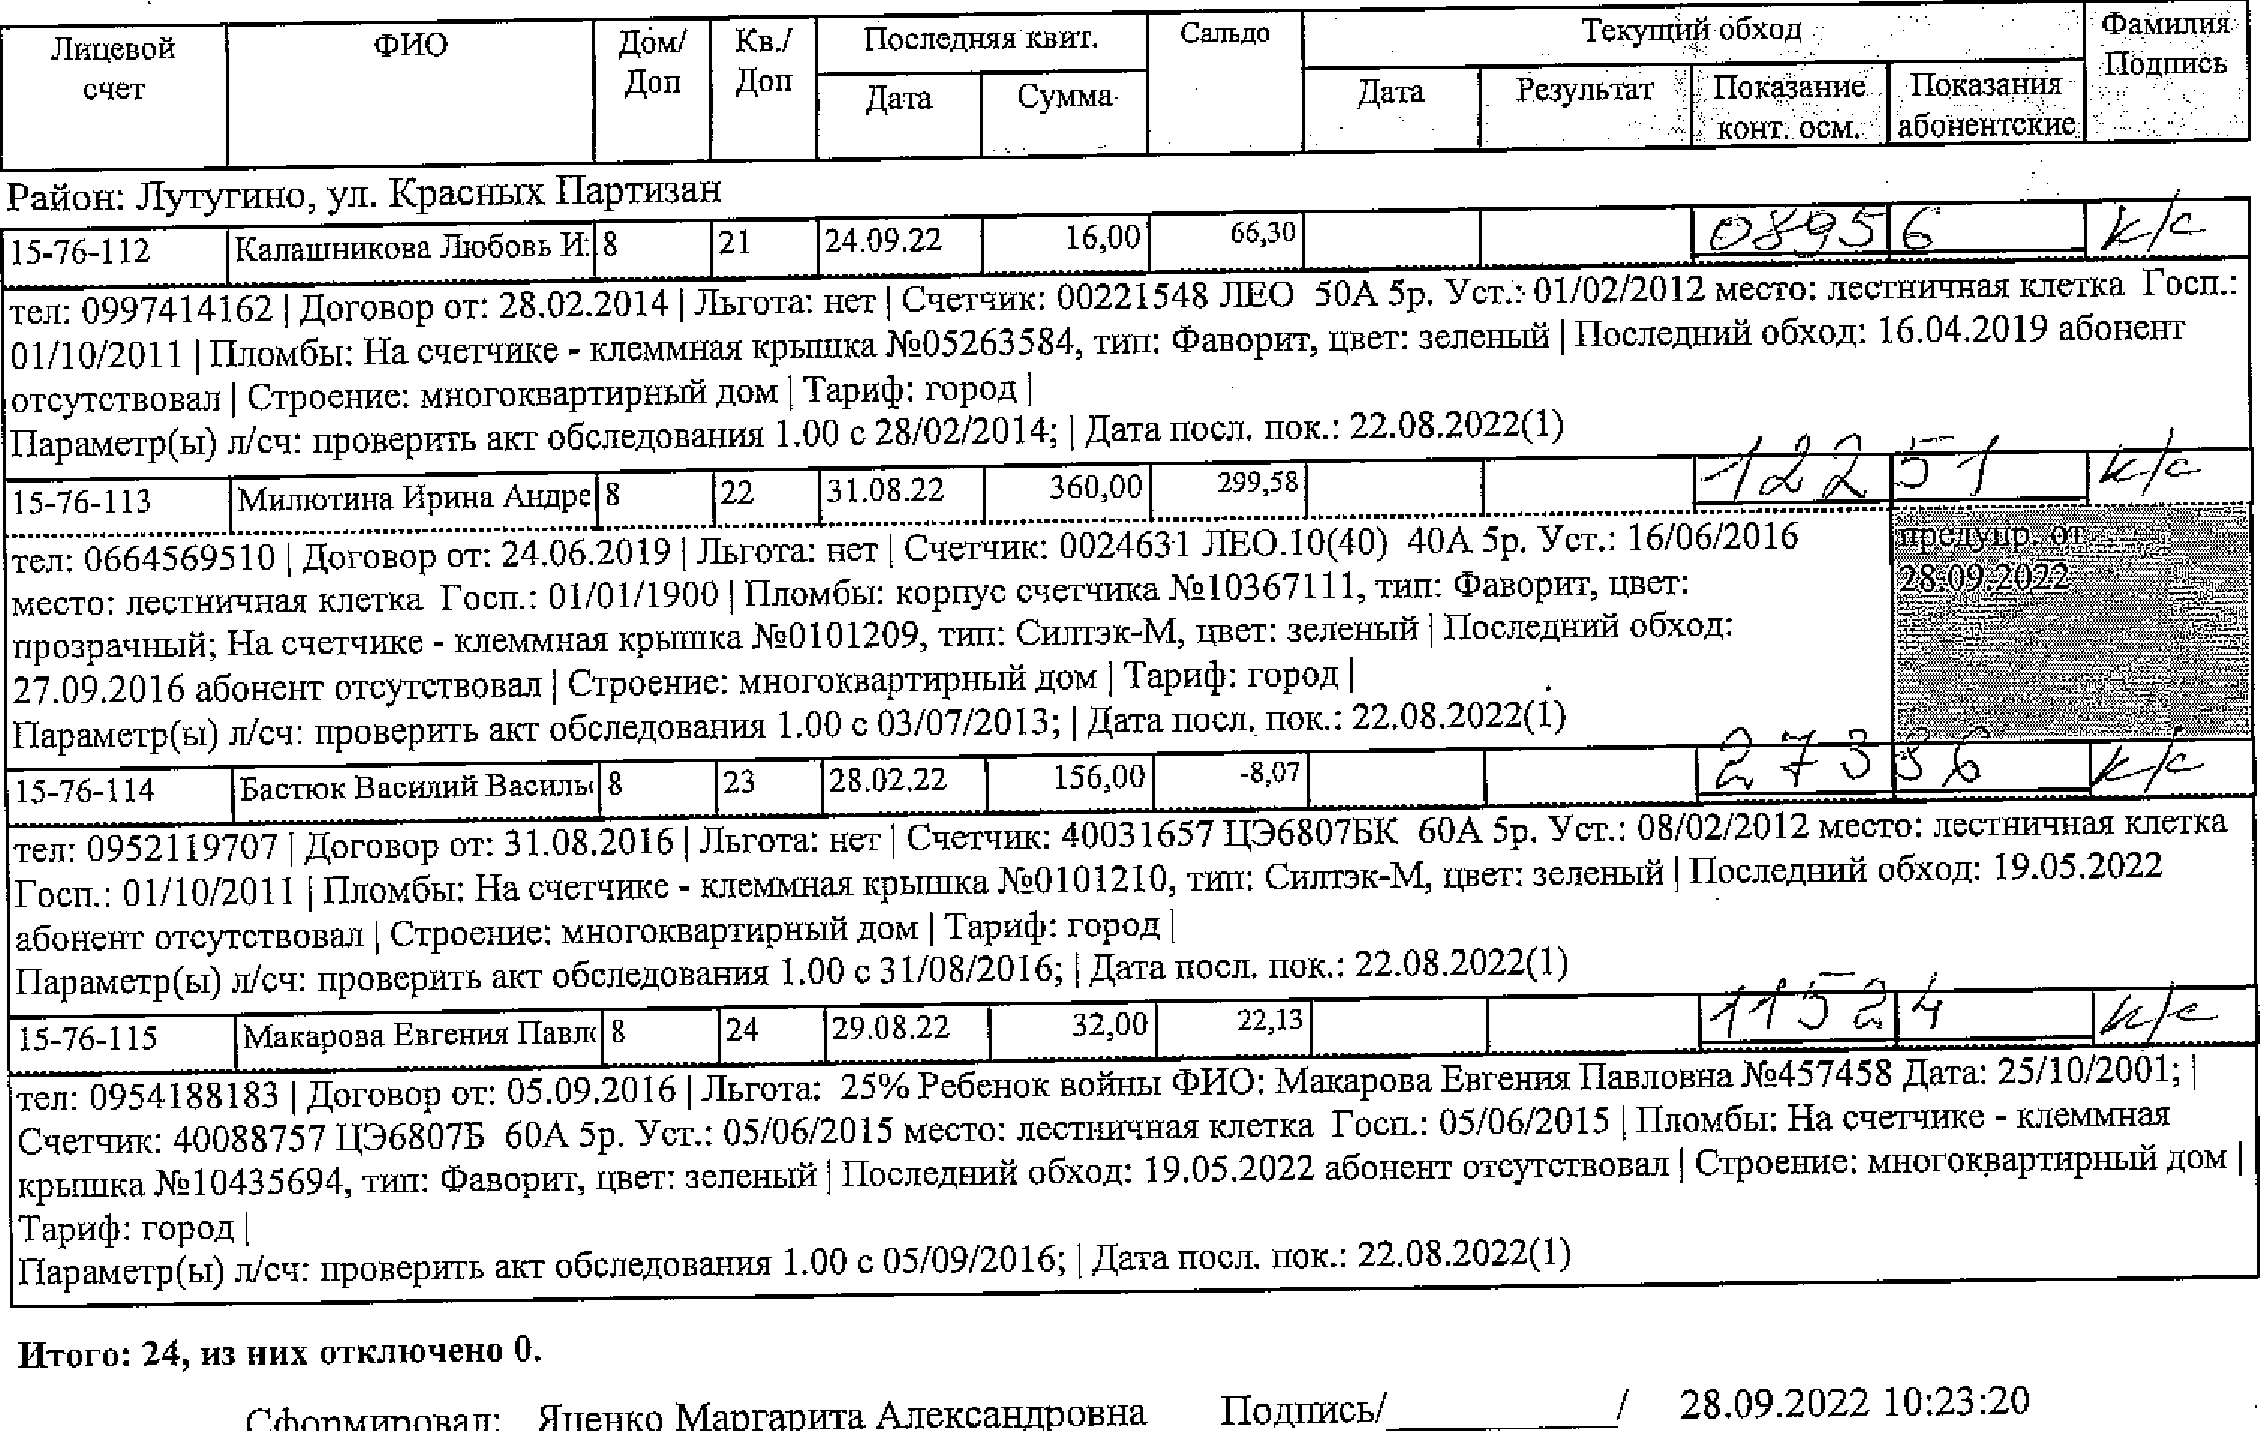 Лицевой счет | ФИО | Дом/ Доп | Кв./ Доп | Последняя квит. | Сальдо | Текущий обход | Фамилия Подпись
Дата | Сумма | Дата | Результат | Показание конт. осм. | Показания абонентские
Район: Лутугино, ул. Красных Партизан
15-76-112 | Калашникова Любовь И. | 8 | 21 | 24.09.22 | 16,00 | 66,30 | 08956 | к/с
тел: 0997414162 | Договор от: 28.02.2014 | Льгота: нет | Счетчик: 00221548 ЛЕО 50А 5р. Уст.: 01/02/2012 место: лестничная клетка Госп.:
01/10/2011 | Пломбы: На счетчике - клеммная крышка №05263584, тип: Фаворит, цвет: зеленый | Последний обход: 16.04.2019 абонент
отсутствовал | Строение: многоквартирный дом | Тариф: город |
Параметр(ы) л/сч: проверить акт обследования 1.00 с 28/02/2014; | Дата посл. пок.: 22.08.2022(1)
15-76-113 | Милютина Ирина Андре | 8 | 22 | 31.08.22 | 360,00 | 299,58 | 12251 | к/с
тел: 0664569510 | Договор от: 24.06.2019 | Льгота: нет | Счетчик: 0024631 ЛЕО.10(40) 40А 5р. Уст.: 16/06/2016
место: лестничная клетка Госп.: 01/01/1900 | Пломбы: корпус счетчика №10367111, тип: Фаворит, цвет:
прозрачный; На счетчике - клеммная крышка №0101209, тип: Силтэк-М, цвет: зеленый | Последний обход:
27.09.2016 абонент отсутствовал | Строение: многоквартирный дом | Тариф: город |
Параметр(ы) л/сч: проверить акт обследования 1.00 с 03/07/2013; | Дата посл. пок.: 22.08.2022(1)
предупр. от
28.09.2022
15-76-114 | Бастюк Василий Василь | 8 | 23 | 28.02.22 | 156,00 | -8,07 | 27336 | к/с
тел: 0952119707 | Договор от: 31.08.2016 | Льгота: нет | Счетчик: 40031657 ЦЭ6807БК 60А 5р. Уст.: 08/02/2012 место: лестничная клетка
Госп.: 01/10/2011 | Пломбы: На счетчике - клеммная крышка №0101210, тип: Силтэк-М, цвет: зеленый | Последний обход: 19.05.2022
абонент отсутствовал | Строение: многоквартирный дом | Тариф: город |
Параметр(ы) л/сч: проверить акт обследования 1.00 с 31/08/2016; | Дата посл. пок.: 22.08.2022(1)
15-76-115 | Макарова Евгения Павл | 8 | 24 | 29.08.22 | 32,00 | 22,13 | 11524 | к/с
тел: 0954188183 | Договор от: 05.09.2016 | Льгота: 25% Ребенок войны ФИО: Макарова Евгения Павловна №457458 Дата: 25/10/2001; |
Счетчик: 40088757 ЦЭ6807Б 60А 5р. Уст.: 05/06/2015 место: лестничная клетка Госп.: 05/06/2015 | Пломбы: На счетчике - клеммная
крышка №10435694, тип: Фаворит, цвет: зеленый | Последний обход: 19.05.2022 абонент отсутствовал | Строение: многоквартирный дом |
Тариф: город |
Параметр(ы) л/сч: проверить акт обследования 1.00 с 05/09/2016; | Дата посл. пок.: 22.08.2022(1)
Итого: 24, из них отключено 0.
Сформировал: Яценко Маргарита Александровна Подпись/____________/ 28.09.2022 10:23:20